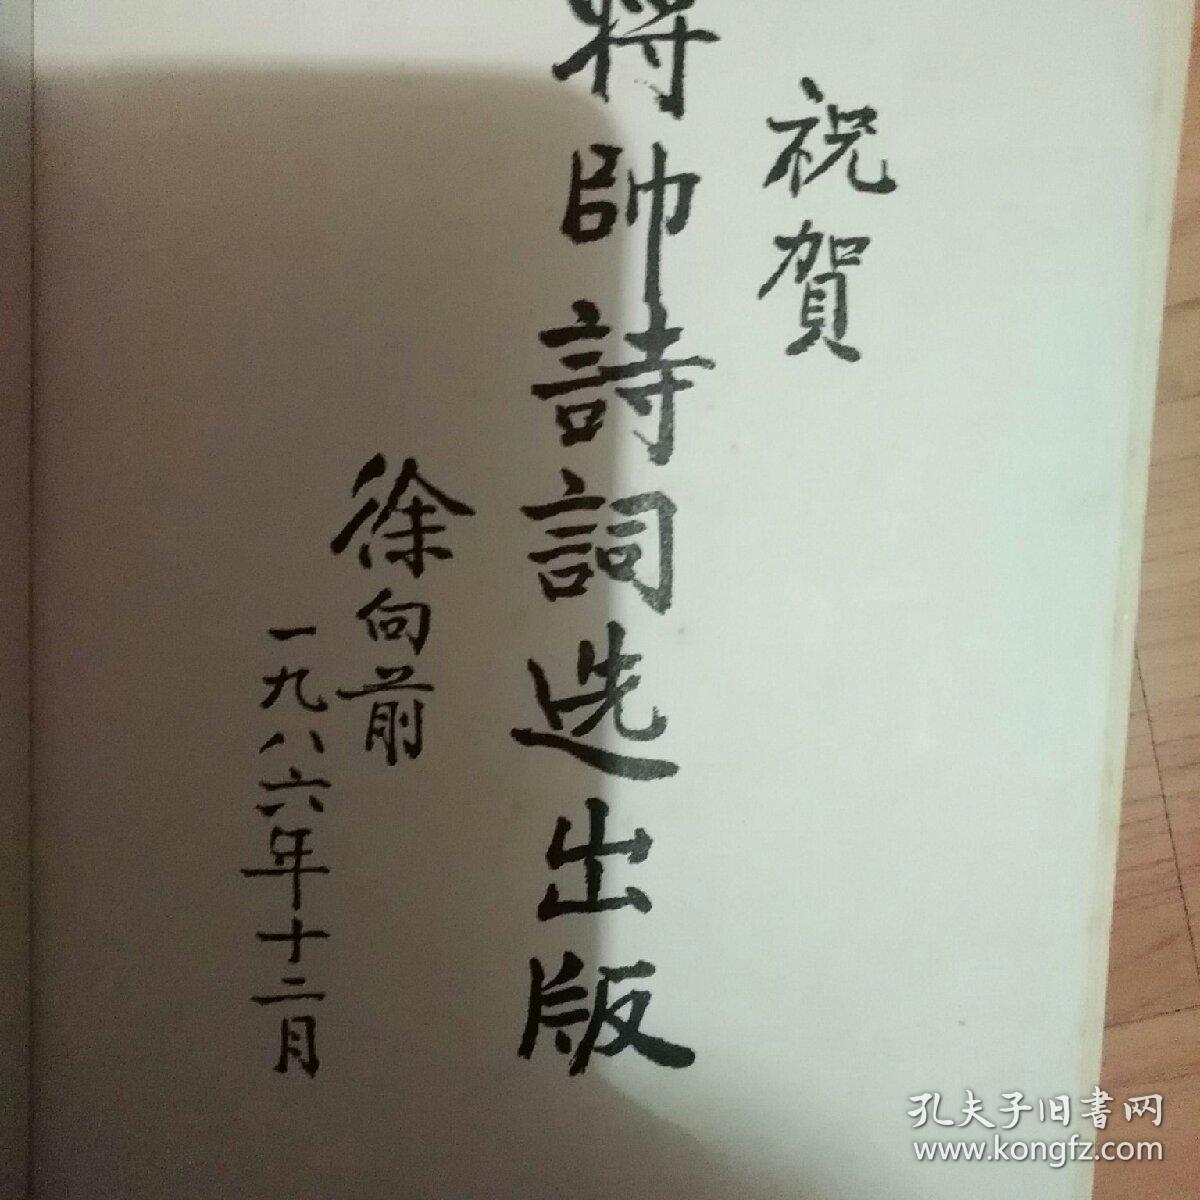 祝賀
將帥詩詞选出版
徐向前
一九八六年十二月
孔夫子旧書网
www.kongfz.com